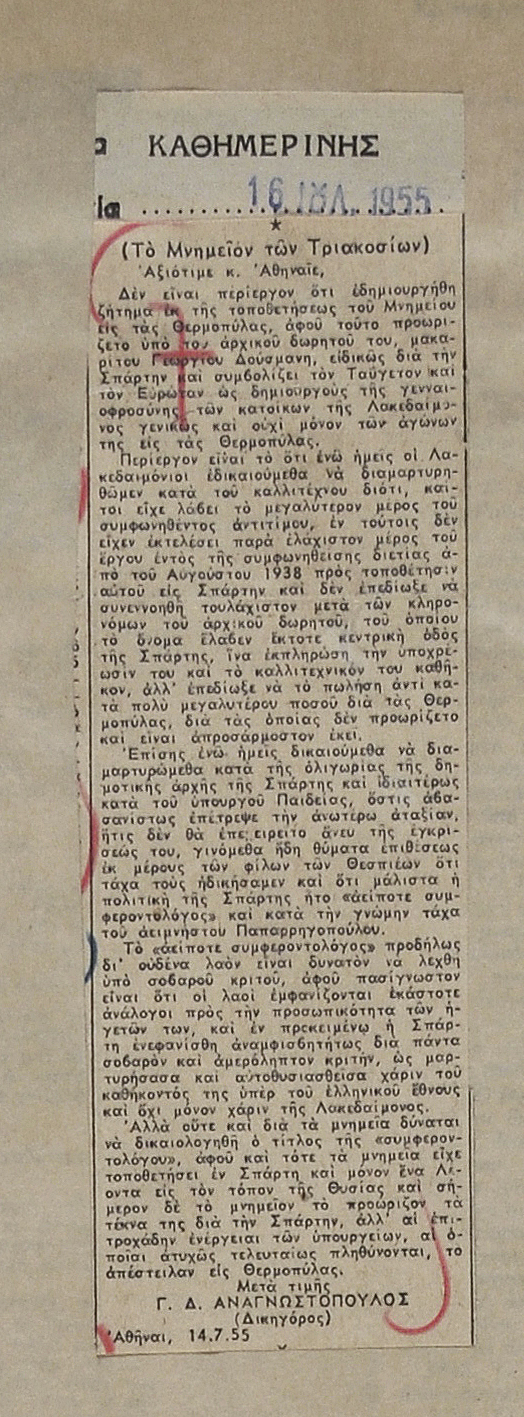 α ΚΑΘΗΜΕΡΙΝΗΣ
ία ....................
16 ΙΟΥΛ. 1955
★
(Τὸ Μνημεῖον τῶν Τριακοσίων)
Ἀξιότιμε κ. Ἀθηναῖε,
Δὲν εἶναι περίεργον ὅτι ἐδημιουργήθη
ζήτημα ἐκ τῆς τοποθετήσεως τοῦ Μνημείου
εἰς τὰς Θερμοπύλας, ἀφοῦ τοῦτο προωρί-
ζετο ὑπὸ τοῦ ἀρχικοῦ δωρητοῦ του, μακα-
ρίτου Γεωργίου Δούσμανη, εἰδικῶς διὰ τὴν
Σπάρτην καὶ συμβολίζει τὸν Ταΰγετον καὶ
τὸν Εὐρώταν ὡς δημιουργοὺς τῆς γενναι-
οφροσύνης τῶν κατοίκων τῆς Λακεδαίμο-
νος γενικῶς καὶ οὐχὶ μόνον τῶν ἀγώνων
της εἰς τὰς Θερμοπύλας.
Περίεργον εἶναι τὸ ὅτι ἐνῶ ἡμεῖς οἱ Λα-
κεδαιμόνιοι ἐδικαιούμεθα νὰ διαμαρτυρη-
θῶμεν κατὰ τοῦ καλλιτέχνου διότι, καί-
τοι εἶχε λάβει τὸ μεγαλύτερον μέρος τοῦ
συμφωνηθέντος ἀντιτίμου, ἐν τούτοις δὲν
εἶχεν ἐκτελέσει παρὰ ἐλάχιστον μέρος τοῦ
ἔργου ἐντὸς τῆς συμφωνηθείσης διετίας ἀ-
πὸ τοῦ Αὐγούστου 1938 πρὸς τοποθέτησιν
αὐτοῦ εἰς Σπάρτην καὶ δὲν ἐπεδίωξε νὰ
συνεννοηθῆ τουλάχιστον μετὰ τῶν κληρο-
νόμων τοῦ ἀρχικοῦ δωρητοῦ, τοῦ ὁποίου
τὸ ὄνομα ἔλαβεν ἔκτοτε κεντρικὴ ὁδὸς
τῆς Σπάρτης, ἵνα ἐκπληρώση τὴν ὑποχρέ-
ωσίν του καὶ τὸ καλλιτεχνικόν του καθῆ-
κον, ἀλλ' ἐπεδίωξε νὰ τὸ πωλήση ἀντὶ κα-
τὰ πολὺ μεγαλυτέρου ποσοῦ διὰ τὰς Θερ-
μοπύλας, διὰ τὰς ὁποίας δὲν προωρίζετο
καὶ εἶναι ἀπροσάρμοστον ἐκεῖ.
Ἐπίσης ἐνῶ ἡμεῖς δικαιούμεθα νὰ δια-
μαρτυρώμεθα κατὰ τῆς ὀλιγωρίας τῆς δη-
μοτικῆς ἀρχῆς τῆς Σπάρτης καὶ ἰδιαιτέρως
κατὰ τοῦ ὑπουργοῦ Παιδείας, ὅστις ἀβα-
σανίστως ἐπέτρεψε τὴν ἀνωτέρω ἀταξίαν,
ἥτις δὲν θὰ ἐπεχειρεῖτο ἄνευ τῆς ἐγκρί-
σεώς του, γινόμεθα ἤδη θύματα ἐπιθέσεως
ἐκ μέρους τῶν φίλων τῶν Θεσπιέων ὅτι
τάχα τοὺς ἠδικήσαμεν καὶ ὅτι μάλιστα ἡ
πολιτικὴ τῆς Σπάρτης ἦτο «ἀείποτε συμ-
φεροντολόγος» καὶ κατὰ τὴν γνώμην τάχα
τοῦ ἀειμνήστου Παπαρρηγοπούλου.
Τὸ «ἀείποτε συμφεροντολόγος» προδήλως
δι' οὐδένα λαὸν εἶναι δυνατὸν νὰ λεχθῆ
ὑπὸ σοβαροῦ κριτοῦ, ἀφοῦ πασίγνωστον
εἶναι ὅτι οἱ λαοὶ ἐμφανίζονται ἑκάστοτε
ἀνάλογοι πρὸς τὴν προσωπικότητα τῶν ἡ-
γετῶν των, καὶ ἐν προκειμένῳ ἡ Σπάρ-
τη ἐνεφανίσθη ἀναμφισβητήτως διὰ πάντα
σοβαρὸν καὶ ἀμερόληπτον κριτήν, ὡς μαρ-
τυρήσασα καὶ αὐτοθυσιασθεῖσα χάριν τοῦ
καθήκοντός της ὑπὲρ τοῦ ἑλληνικοῦ ἔθνους
καὶ ὄχι μόνον χάριν τῆς Λακεδαίμονος.
Ἀλλὰ οὔτε καὶ διὰ τὰ μνημεῖα δύναται
νὰ δικαιολογηθῆ ὁ τίτλος τῆς «συμφερον-
τολόγου», ἀφοῦ καὶ τότε τὰ μνημεῖα εἶχε
τοποθετήσει ἐν Σπάρτη καὶ μόνον ἕνα Λέ-
οντα εἰς τὸν τόπον τῆς Θυσίας καὶ σή-
μερον δὲ τὸ μνημεῖον τὸ προώριζον τὰ
τέκνα της διὰ τὴν Σπάρτην, ἀλλ' αἱ ἐπι-
τροχάδην ἐνέργειαι τῶν ὑπουργείων, αἱ ὁ-
ποῖαι ἀτυχῶς τελευταίως πληθύνονται, τὸ
ἀπέστειλαν εἰς Θερμοπύλας.
Μετὰ τιμῆς
Γ. Δ. ΑΝΑΓΝΩΣΤΟΠΟΥΛΟΣ
(Δικηγόρος)
Ἀθῆναι, 14.7.55